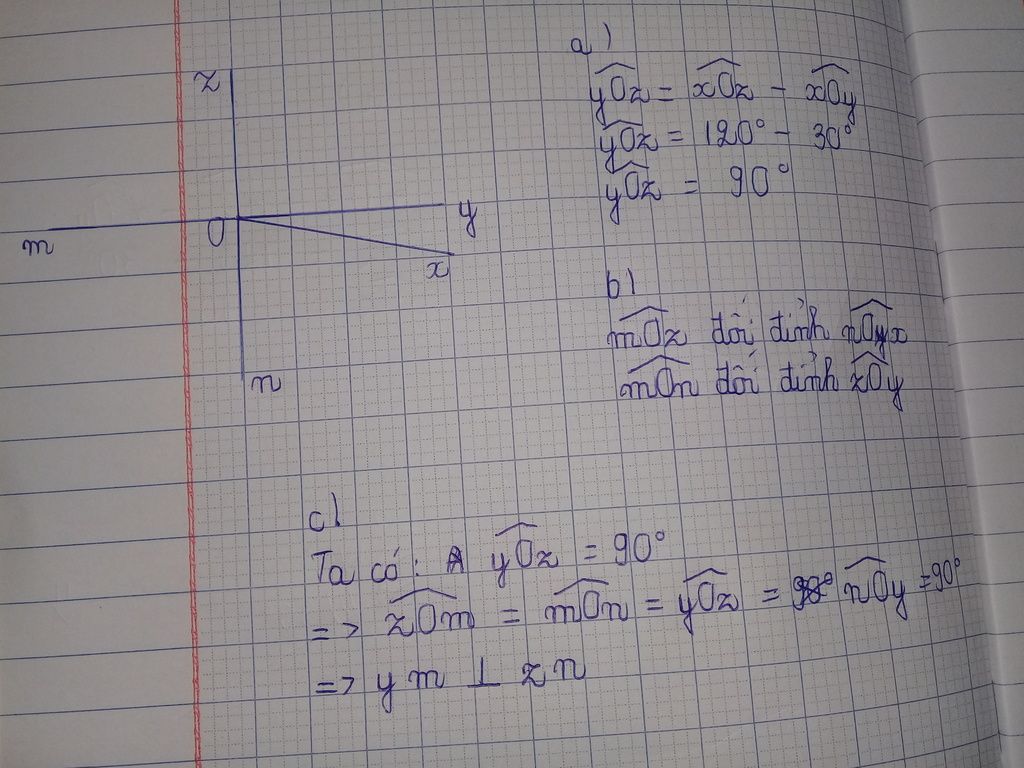 z
m
O
y
x
n
a)
yOz = xOz - xOy
yOz = 120° - 30°
yOz = 90°
b)
mOz đối đỉnh nOy
mOn đối đỉnh zOy
c)
Ta có: yOz = 90°
=> zOm = mOn = yOz = nOy = 90°
=> ym ⊥ zn